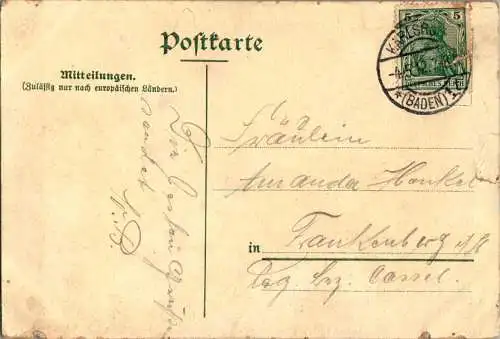 Postkarte
Mitteilungen.
(Zulässig nur nach europäischen Ländern.)
Die besten Grüße
sendet
Fräulein
Amanda Henkel
in Frankenberg
Reg. bez. Cassel.
5 5
KARLSRUHE
(BADEN)